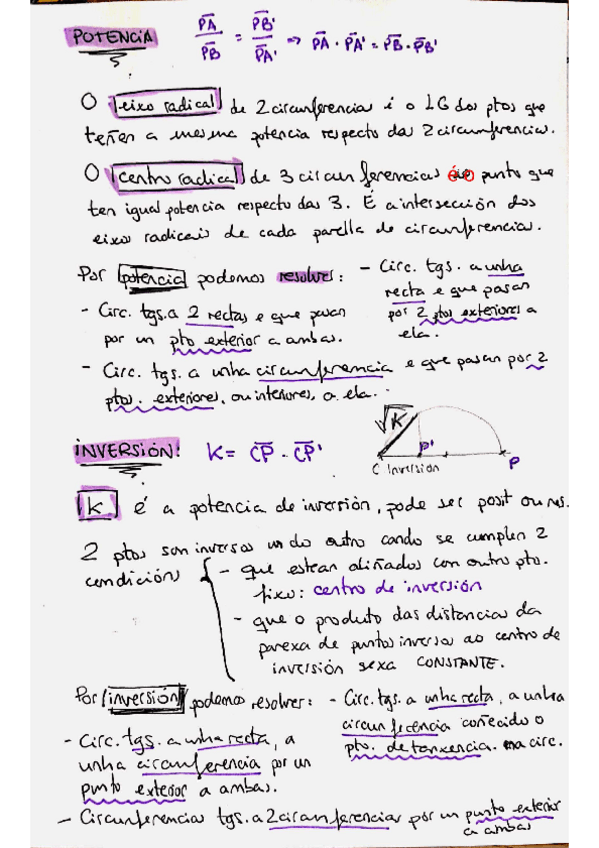 POTENCIA
PA/PB = PB'/PA' => PA · PA' = PB · PB'
O eixo radical de 2 circunferencias é o LG dos ptos que
teñen a mesma potencia respecto das 2 circunferencias.
O centro radical de 3 circunferencias é o punto que
ten igual potencia respecto das 3. É a intersección dos
eixos radicais de cada parella de circunferencias.
Por potencia podemos resolver:
- Circ. tgs. a 2 rectas e que pasan
por un pto exterior a ambas.
- Circ. tgs. a unha
recta e que pasan
por 2 ptos exteriores a
ela.
- Circ. tgs. a unha circunferencia e que pasan por 2
ptos. exteriores, ou interiores, a ela.
INVERSIÓN: K = CP · CP'
√K
P'
C Inversión
P
K é a potencia de inversión, pode ser posit ou nes.
2 ptos son inversos un do outro cando se cumplen 2
condicións
- que estean aliñados con outro pto.
fixo: centro de inversión
- que o produto das distancias da
parexa de puntos inversos ao centro de
inversión sexa CONSTANTE.
Por inversión podemos resolver:
- Circ. tgs. a unha recta, a
unha circunferencia por un
punto exterior a ambas.
- Circ. tgs. a unha recta, a unha
circunferencia coñecido o
pto. de tanxencia na circ.
- Circunferencias tgs. a 2 circunferencias por un punto exterior
a ambas